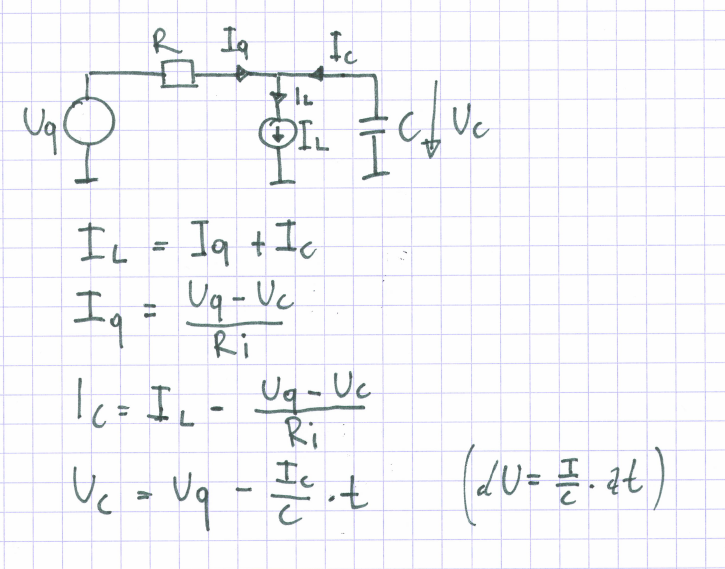 R Iq Ic
Uq IL IL C Uc
IL = Iq + Ic
Iq = (Uq - Uc) / Ri
Ic = IL - (Uq - Uc) / Ri
Uc = Uq - Ic/C · t (dU = I/C · dt)